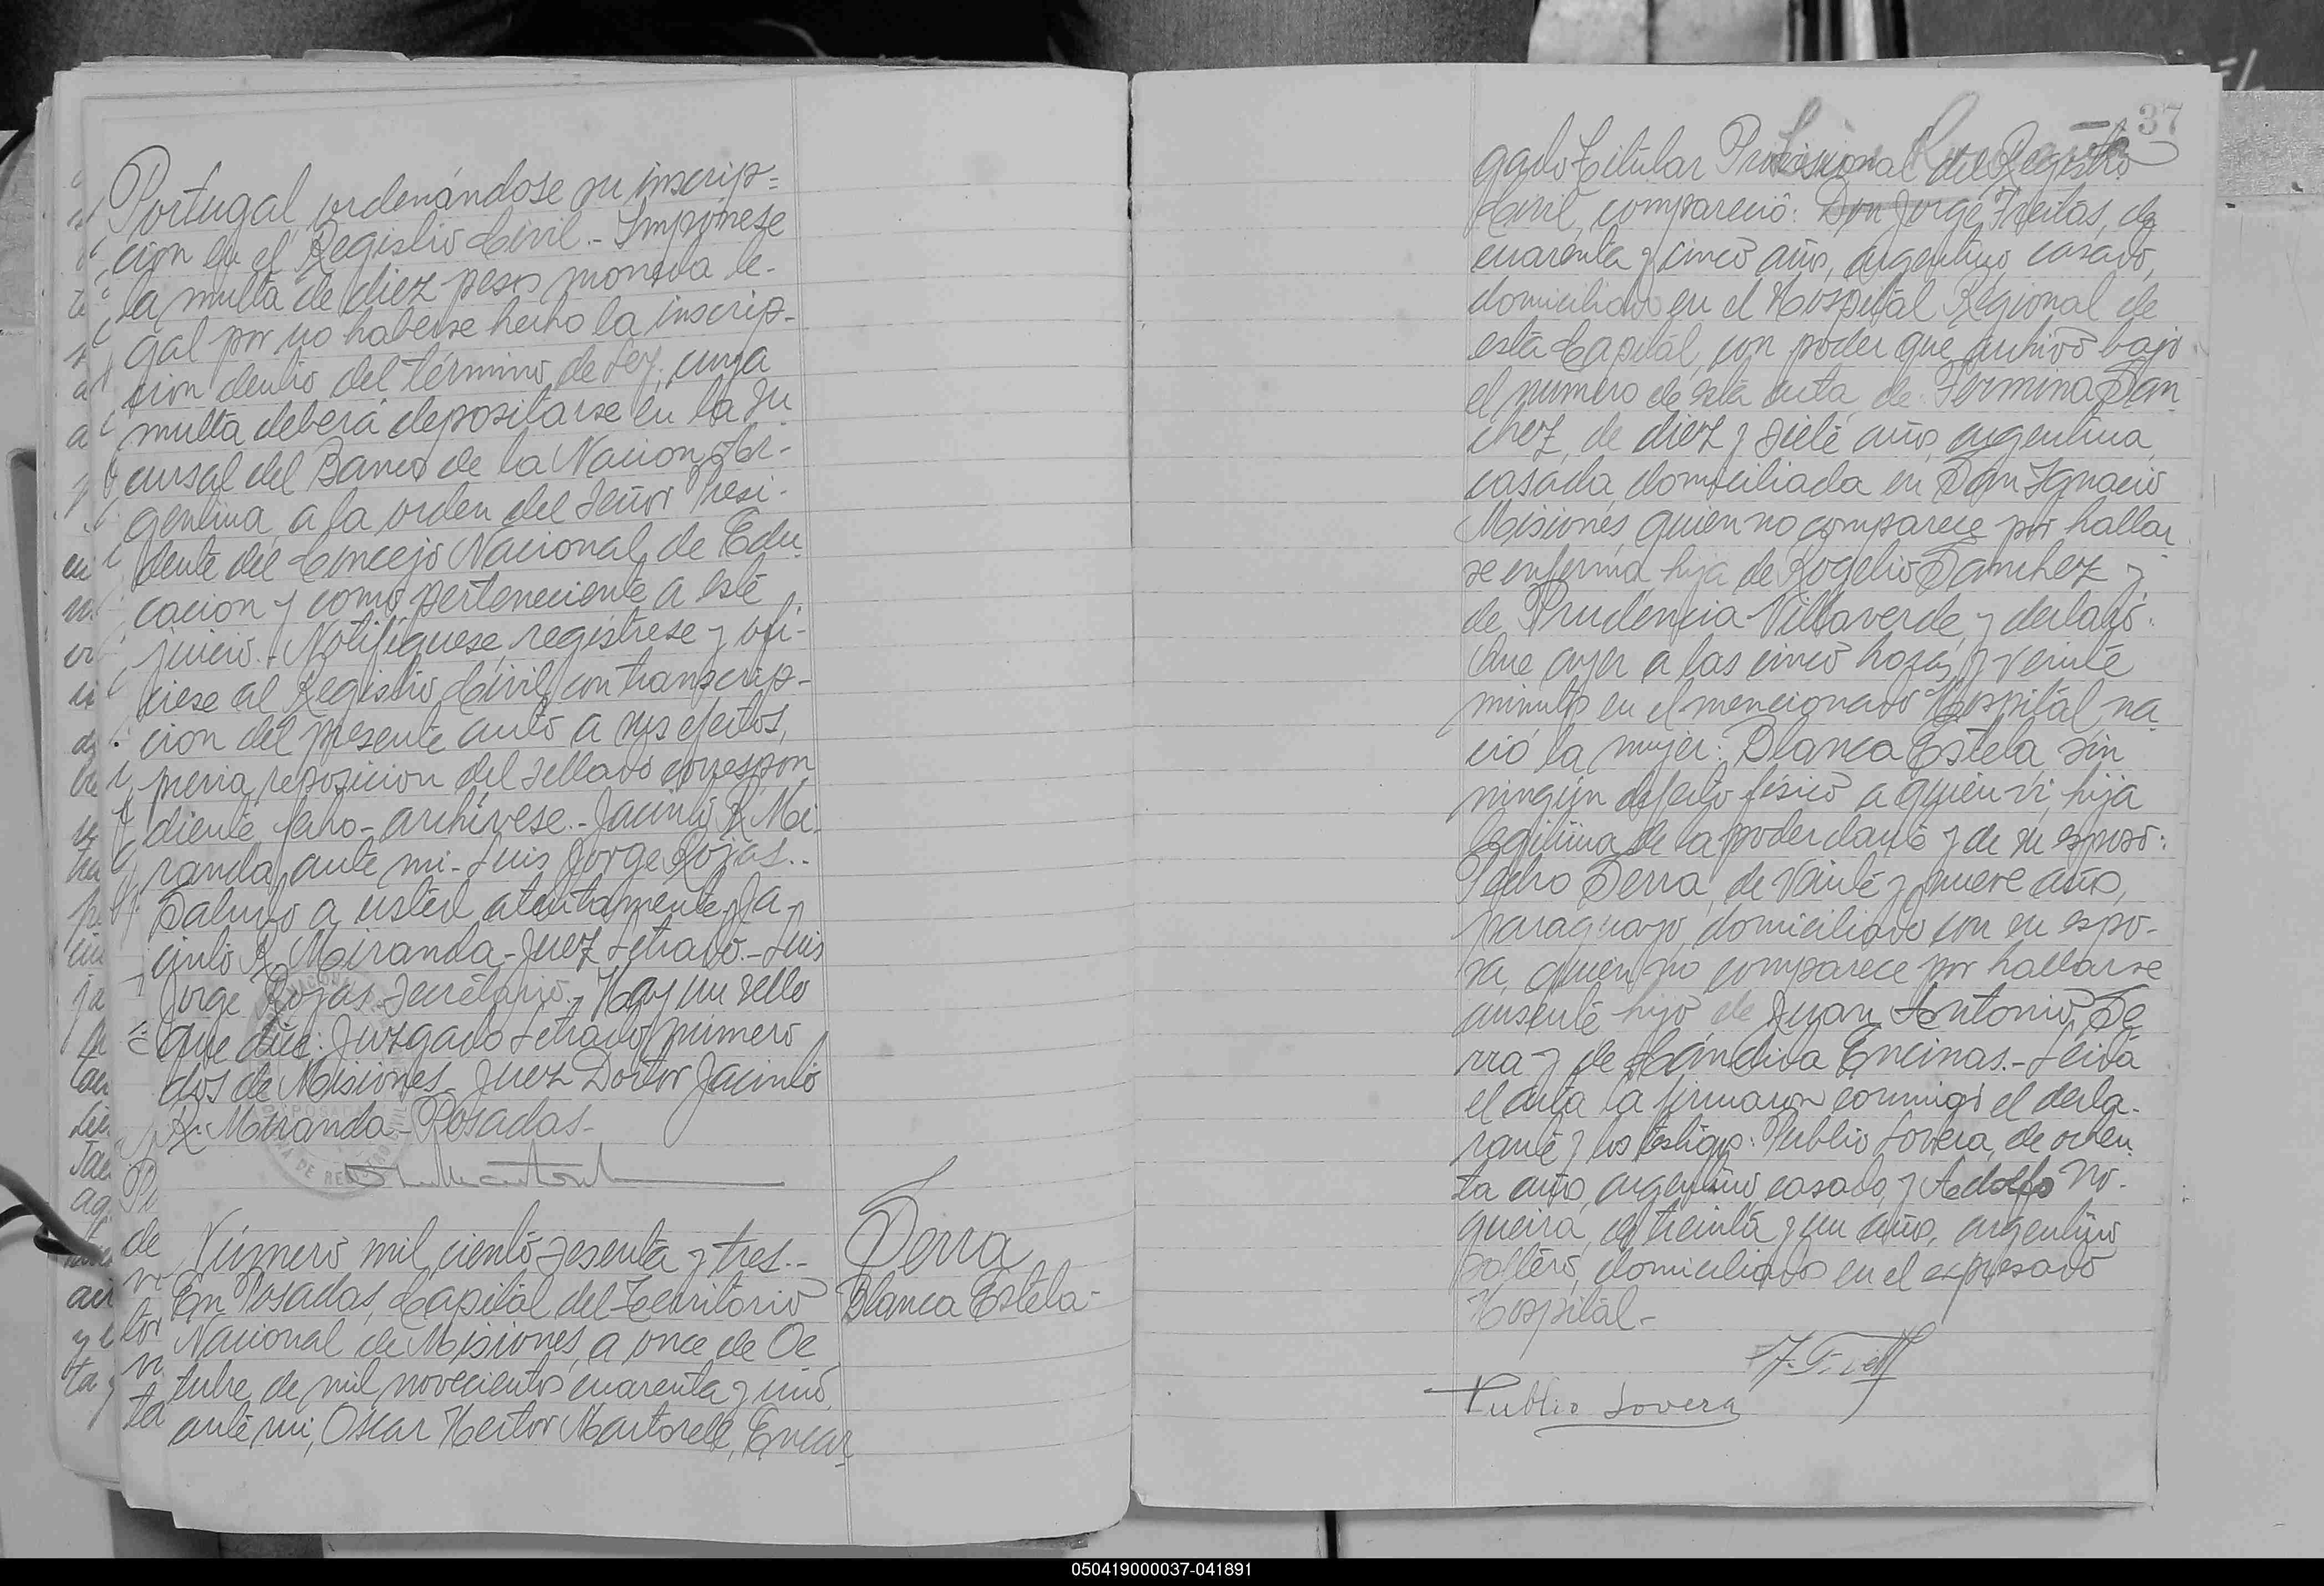 Portugal ordenándose su inscrip=
cion en el Registro Civil.- Impónese
la multa de diez pesos moneda le-
gal por no haberse hecho la inscrip-
cion dentro del término de Ley, cuya
multa deberá depositarse en la Su
cursal del Banco de la Nacion Ar-
gentina, a la orden del Señor Presi-
dente del Concejo Nacional de Edu
cacion y como perteneciente a este
juicio.- Notifíquese, registrese y ofi-
ciese al Registro Civil, con transcrip-
cion del presente auto a sus efectos,
previa reposicion del sellado correspon
diente, fecho- archívese.- Jacinto R. Mi-
randa, ante mi- Luis Jorge Rojas..
Saludo a usted atentamente. Ja-
cinto R. Miranda- Juez Letrado.- Luis
Jorge Rojas. Secretario. Hay un sello
que dice: Juzgado Letrado número
dos de Misiones- Juez Doctor Jacinto
R. Miranda- Posadas-
Número mil ciento sesenta y tres.-
En Posadas, Capital del Territorio
Nacional de Misiones, a once de Oc
tubre de mil novecientos cuarenta y uno,
ante mi, Oscar Hector Martorell, Encar
Serra
Blanca Estela-
37
gado Titular Provisional del Registro
Civil, compareció: Don Jorge Freitas, de
cuarenta y cinco años, argentino, casado,
domiciliado en el Hospital Regional de
esta Capital, con poder que archivo bajo
el numero de esta acta, de Fermina San
chez, de diez y siete años, argentina,
casada, domiciliada en San Ignacio
Misiones, quien no comparece por hallar
se enferma, hija de Rogelio Sanchez y
de Prudencia Villaverde, y declaró:
Que ayer a las cinco horas y veinte
minutos en el mencionado Hospital, na
ció la mujer: Blanca Estela, sin
ningún defecto físico a quien vi, hija
legitima de la poderdante y de su esposo:
Pedro Serra, de veinte y nueve años,
paraguayo, domiciliado con su espo-
sa, quien no comparece por hallarse
ausente, hijo de Juan Antonio Se
rra y de Cándida Encinas.- Leida
el acta la firmaron conmigo el decla-
rante y los testigos: Publio Lovera, de ochen
ta años, argentino, casado, y Adolfo No-
gueira, de treinta y un años, argentino
soltero, domiciliados en el expresado
Hospital.-
Publio Lovera
050419000037-041891